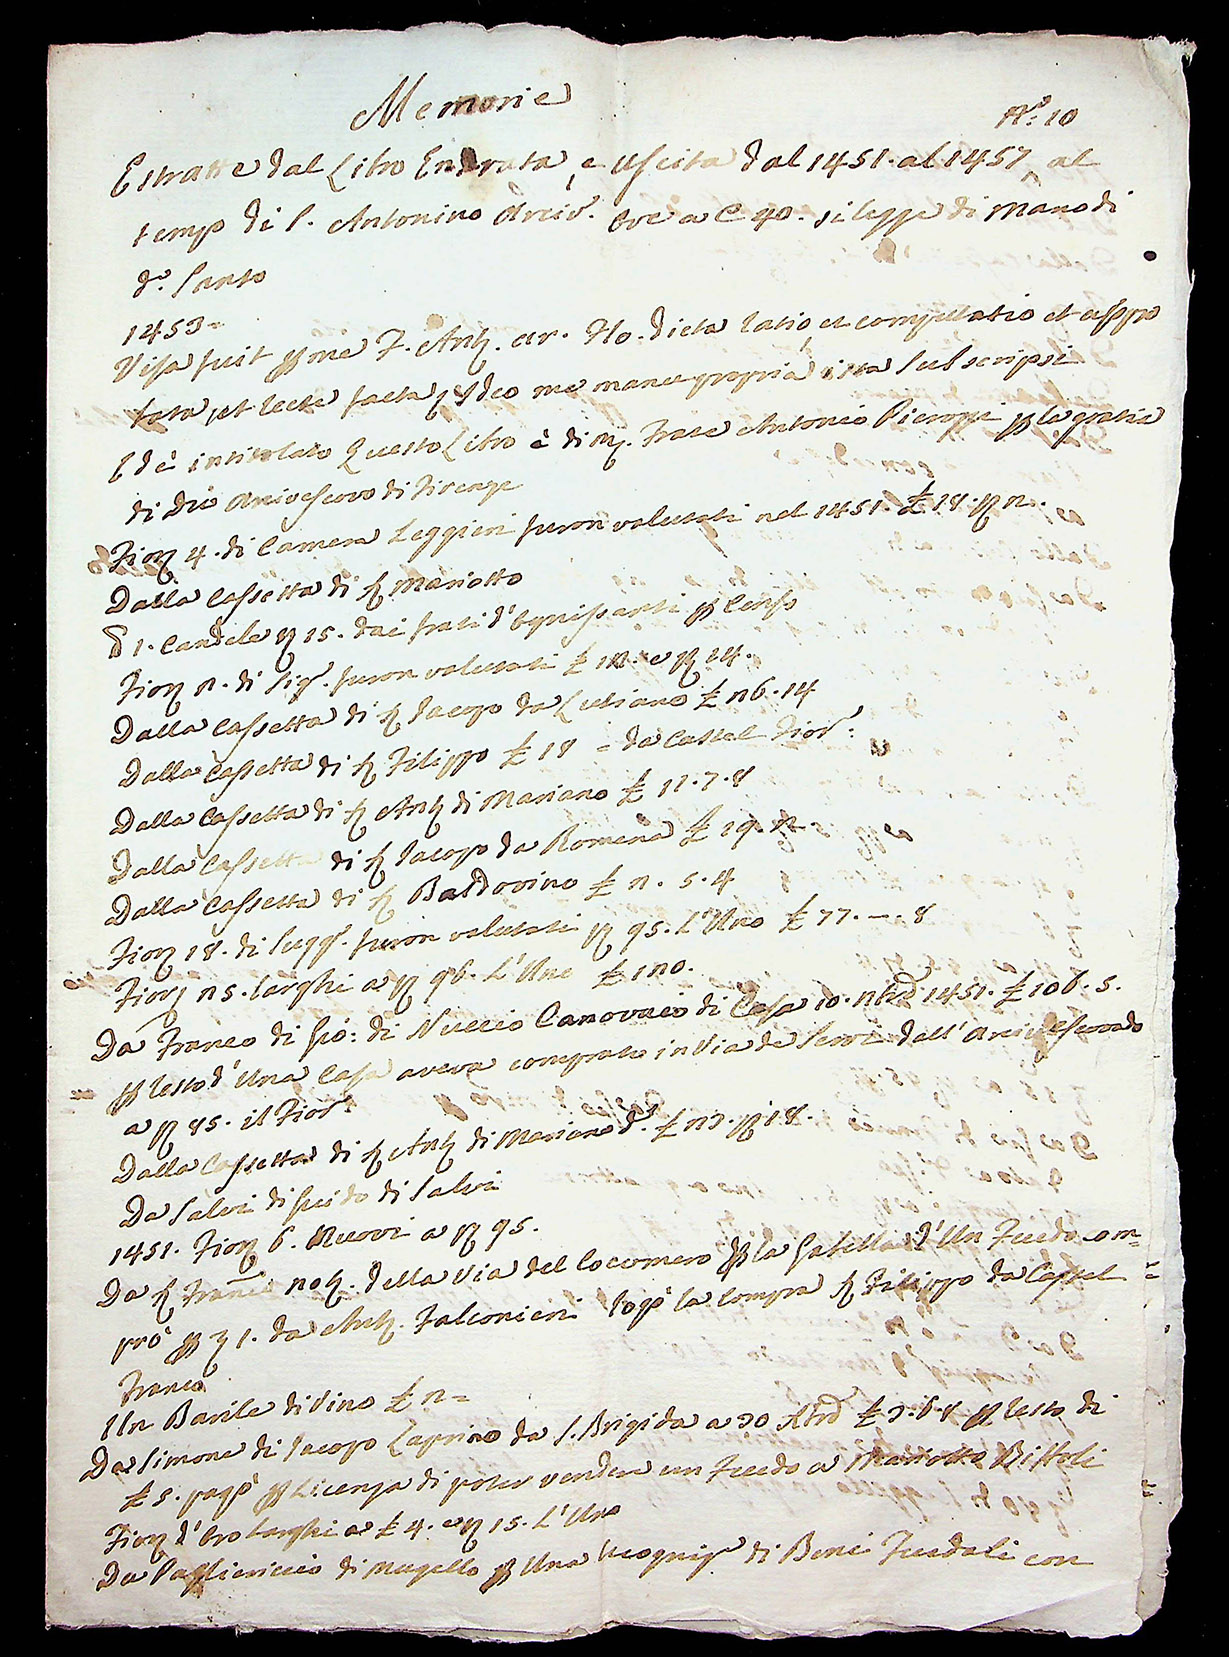 Memorie
N.° 10
Estratte dal Libro Entrata, e Uscita dal 1451. al 1457 al
tempo di S. Antonino Arciv. ove a C 40. si legge di Mano di
d.° Santo
1453=
Visa fuit p me F. Ant. ar. Flo. dicta ratio, et computatio et
recte facta Ideo me manu propria ista subscripsi
Ed è intitolato Questo Libro è di M. Frate Antonio Pierozzi p la gratia
di Dio Arcivescovo di Firenze
Fior 4. di Camera Leggieri furon valutati nel 1451. £ 18. 2.
Dalla Cassetta di S Mariotto
1. Candele 15. dai frati d'Ognissanti p Censo
Fior 2. di Sig. furon valutati £ e 14.
Dalla Cassetta di S Jacopo da Lutiano £ 26. 14
Dalla Cassetta di S Filippo £ 18 = da Castel Fior.
Dalla Cassetta di S Ant di Mariano £ 11. 7. 8
Dalla Cassetta di S Jacopo da Romena £ 19. 2.
Dalla Cassetta di S Baldovino £ 2. 5. 4
Fior 18. di Sugg. furon valutati 95. L'Uno £ 77. -. 8
Fior 25. larghi a 96. L'Uno £ 120.
Da Franco di Gio: di Nuccio Canovaio di Casa 10. 1451. £ 106. 5.
p resto d'Una Casa aveva comprato in Via de Servi dell'Arcivescovado
a 85. il Fior.
Dalla Cassetta di S Ant di Mariano d.° £ 23. 18.
Da Salvi di Guido di Salvi
1451. Fior 6. Nuovi a 95.
Da S Franc.° not. della Via del Cocomero p la Gabella d'Un Feudo com=
prò p 31. da Ant. Falconieri rogò la Compra S Filippo da Castel
Franco
Un Barile di Vino £ 2=
Da Simone di Jacopo Caprino da S. Brigida a 30 £ 3. 6. 8 p resto di
£ 5. pagò p Licenza di poter vendere un Feudo a Mariotto Biffoli
Fior d'Oro larghi a £ 4. e 15. L'Uno
Da Pagliericcio di Mugello p Una recogniz. di Beni Feudali con